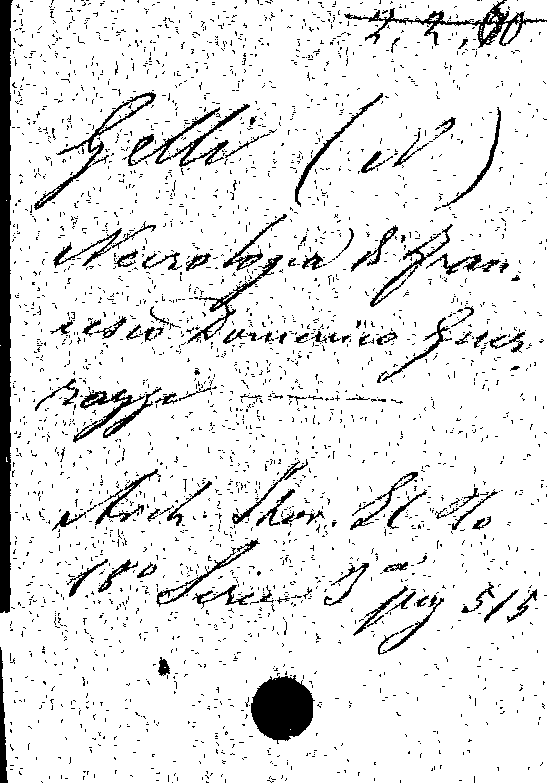 2, 2, 60
Gelli (N)
Necrologia di Fran-
cesco Domenico Guer-
razzi
Arch. Stor. It. To
18º Serie 3ª
pag 515